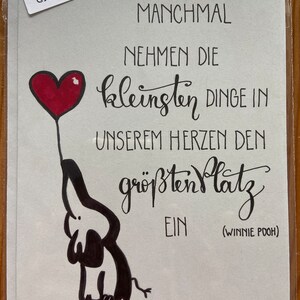 MANCHMAL
NEHMEN DIE
kleinsten DINGE IN
UNSEREM HERZEN DEN
größten Platz
EIN (WINNIE POOH)